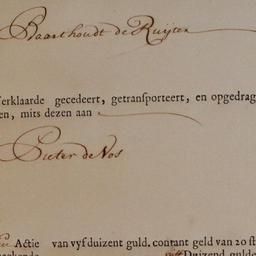 Baarthoudt de Ruijter
erklaarde gecedeert, getransporteert, en opgedrag
en, mits dezen aan
Pieter de Vos
Actie van vyf duizent guld. contant geld van 20 st
Duizend gulde